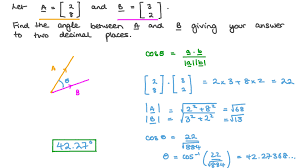 Let A = [2 8] and B = [3 2]
Find the angle between A and B giving your answer
to two decimal places.
cos θ = a · b / |a||b|
[2 8] · [3 2] = 2 × 3 + 8 × 2 = 22
A
θ
B
|A| = √2² + 8² = √68
|B| = √3² + 2² = √13
cos θ = 22 / √884
θ = cos⁻¹ (22 / √884) = 42.27368...
42.27°